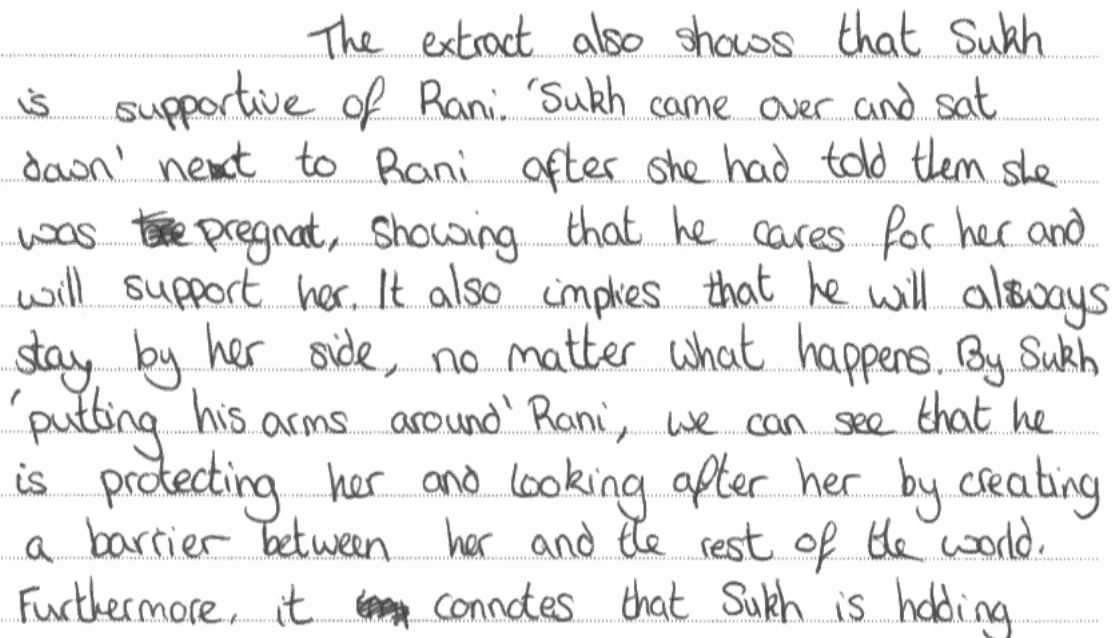 The extract also shows that Sukh
is supportive of Rani. 'Sukh came over and sat
down' next to Rani after she had told them she
was pregnat, showing that he cares for her and
will support her. It also implies that he will always
stay by her side, no matter what happens. By Sukh
'putting his arms around' Rani, we can see that he
is protecting her and looking after her by creating
a barrier between her and the rest of the world.
Furthermore, it connotes that Sukh is holding